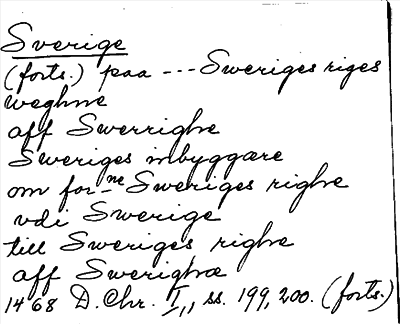 Sverige
(forts.) paa --- Sweriges riges
weghne
aff Swerrighe
Sweriges inbyggare
om for-ne Sweriges righe
vdi Swerige
till Sweriges righe
aff Swerighæ
1468 D. Chr. I,, ss. 199, 200. (forts.)